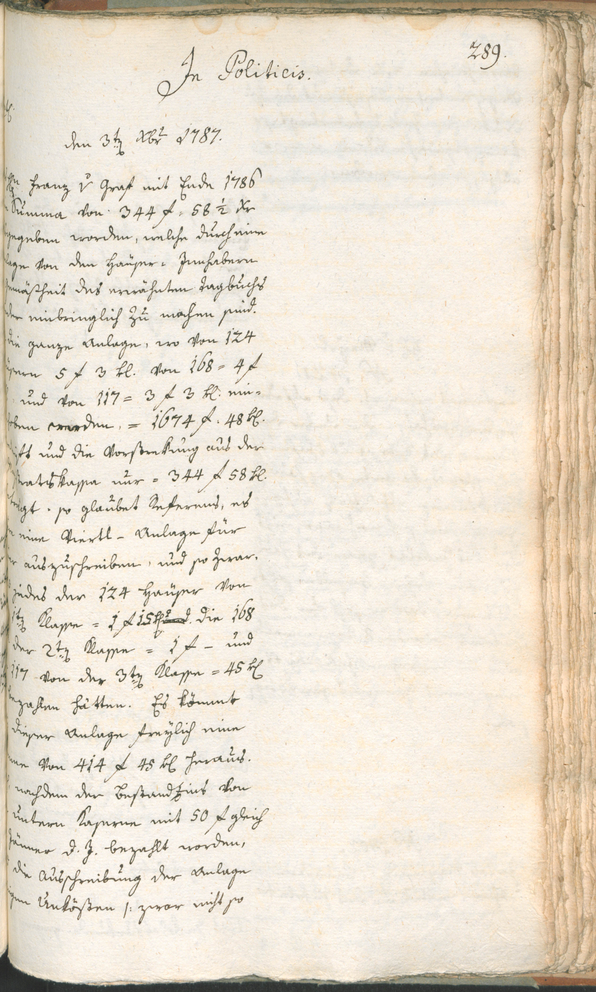 289.
In Politicis.
den 3ten Xbr 1787.
Franz v Graf mit Ende 1786
Summa von 344 f. 58 ½ Xr
gegeben worden, welche durch eine
lage von den Häuser-Innhabern
mäßheit des erwähnten Tagbuchs
der einbringlich zu machen sind.
die ganze Anlage, wo von 124
5 f 3 kl. von 168 = 4 f
und von 117 = 3 f 3 kl. ein-
ben werden, = 1674 f. 48 kl.
und die Vorstrekung aus der
ratskassa nur = 344 f 58 kl.
so glaubet Referens, es
eine Viertl-Anlage für
auszuschreiben, und so zwar,
jedes der 124 Häuser von
1ten Klasse = 1 f 15 kl die 168
der 2ten Klasse = 1 f – und
117 von der 3ten Klasse = 45 kl
bezahlen hätten. Es kömmt
dieser Anlage freylich eine
me von 414 f 45 kl heraus.
nachdem der Bestandzins von
untern Kaserne mit 50 f gleich
Jänner d. J. bezahlt worden,
die Ausschreibung der Anlage
Unkösten /: zwar nicht so